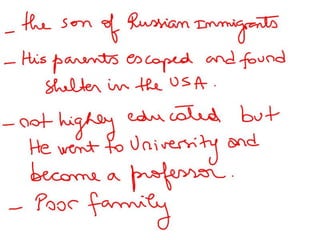 - the son of Russian Immigrants
- His parents escaped and found
shelter in the USA.
- not highly educated but
He went to University and
become a professor.
- Poor family